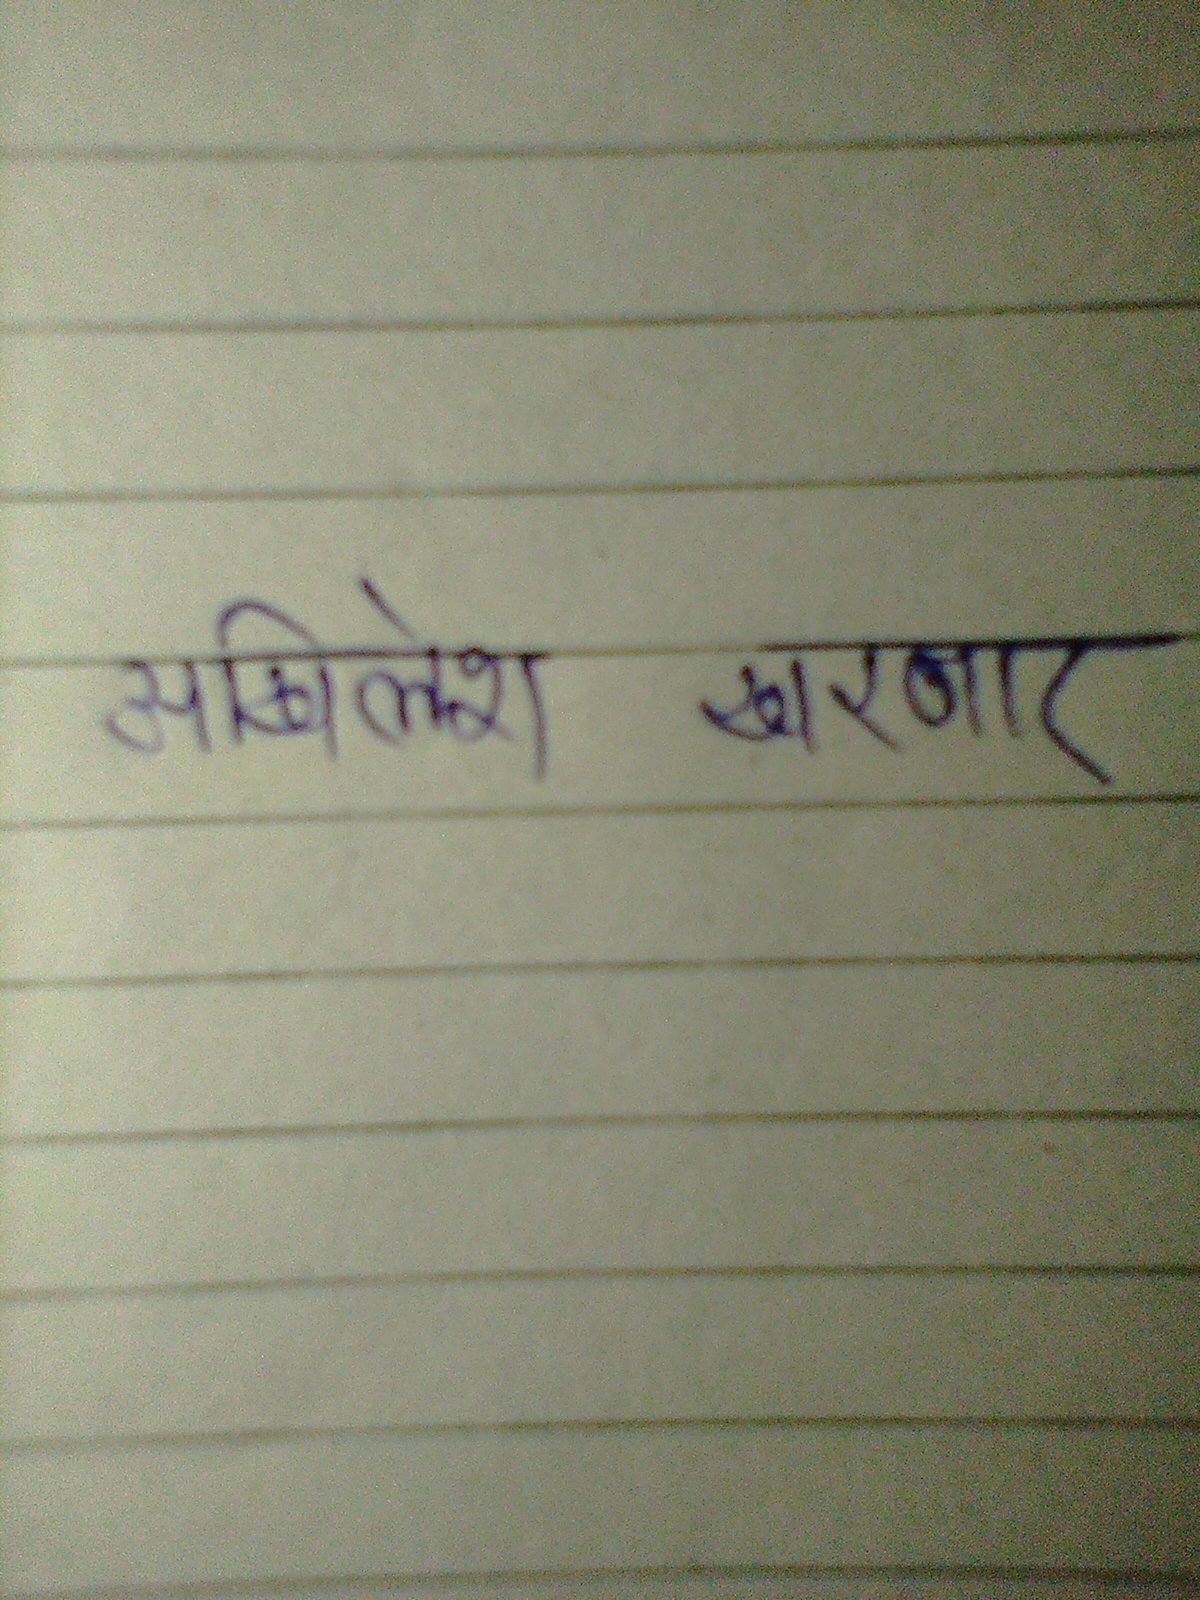 अखिलेश खरवार